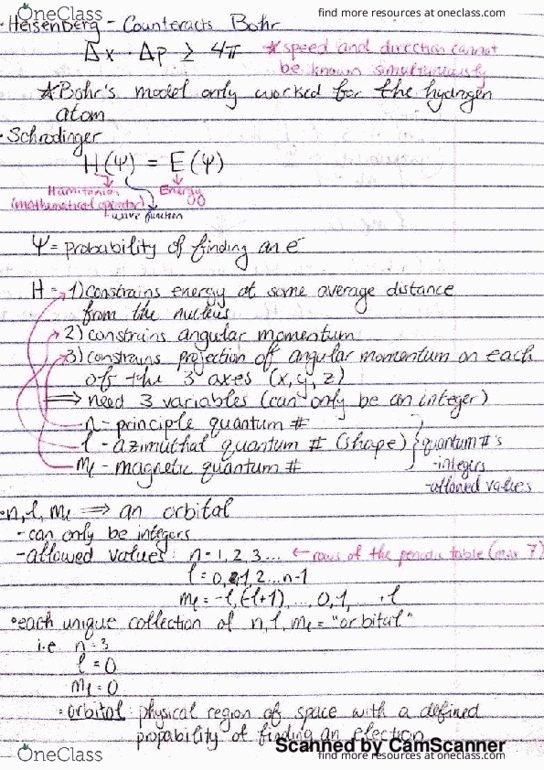 OneClass
find more resources at oneclass.com
• Heisenberg - Counteracts Bohr
Δx · Δp ≥ 4π *speed and direction cannot
be known simultaneously
*Bohr's model only worked for the hydrogen
atom
• Schrodinger
H(Ψ) = E(Ψ)
Hamitonian Energy
(mathematical operator)
wave function
Ψ = probability of finding an e⁻
H = 1) constrains energy at some average distance
from the nucleus
2) constrains angular momentum
3) constrains projection of angular momentum on each
of the 3 axes (x, y, z)
⇒ need 3 variables (can only be an integer)
n - principle quantum #
l - azimuthal quantum # (shape) } quantum #'s
mₗ - magnetic quantum # - integers
- allowed values
• n, l, mₗ ⇒ an orbital
- can only be integers
- allowed values: n = 1, 2, 3... ← rows of the periodic table (max 7)
l = 0, 1, 2... n-1
mₗ = -l, (-l+1), ..., 0, 1, ... l
• each unique collection of n, l, mₗ = "orbital"
i.e. n = 3
l = 0
mₗ = 0
• orbital: physical region of space with a defined
propability of finding an election
Scanned by CamScanner
OneClass
find more resources at oneclass.com